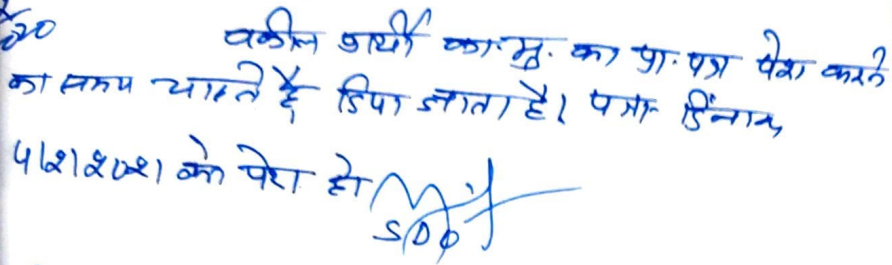 20 वकील प्रार्थी का.मु. का प्रा. पत्र पेश करने
का समय चाहते है दिया जाता है। पत्रा. दिंनाक
5/2/2021 को पेश हो
SDO